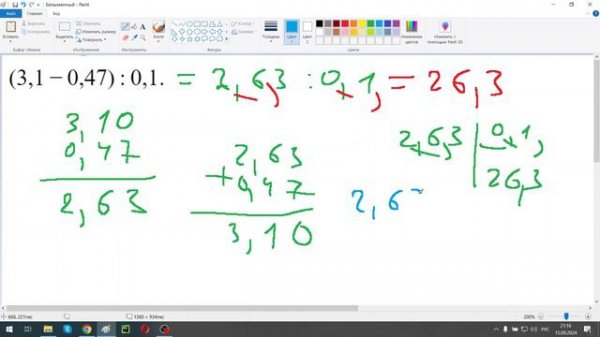 Безымянный - Paint
Файл Главная Вид
Вставить
Выделить
Обрезать
Изменить размер
Повернуть
Кисти
Толщина
Цвет 1
Цвет 2
Изменение цветов
Изменить с помощью Paint 3D
Буфер обмена Изображение Инструменты Фигуры Цвета
(3,1 − 0,47) : 0,1. = 2,6,3 : 0,1, = 26,3
3,10
0,47
2,63
2,63
+0,47
3,10
2,6,3 0,1,
26,3
2,6
668, 221пкс
1560 × 934пкс
200%
РУС
21:16
15.09.2024